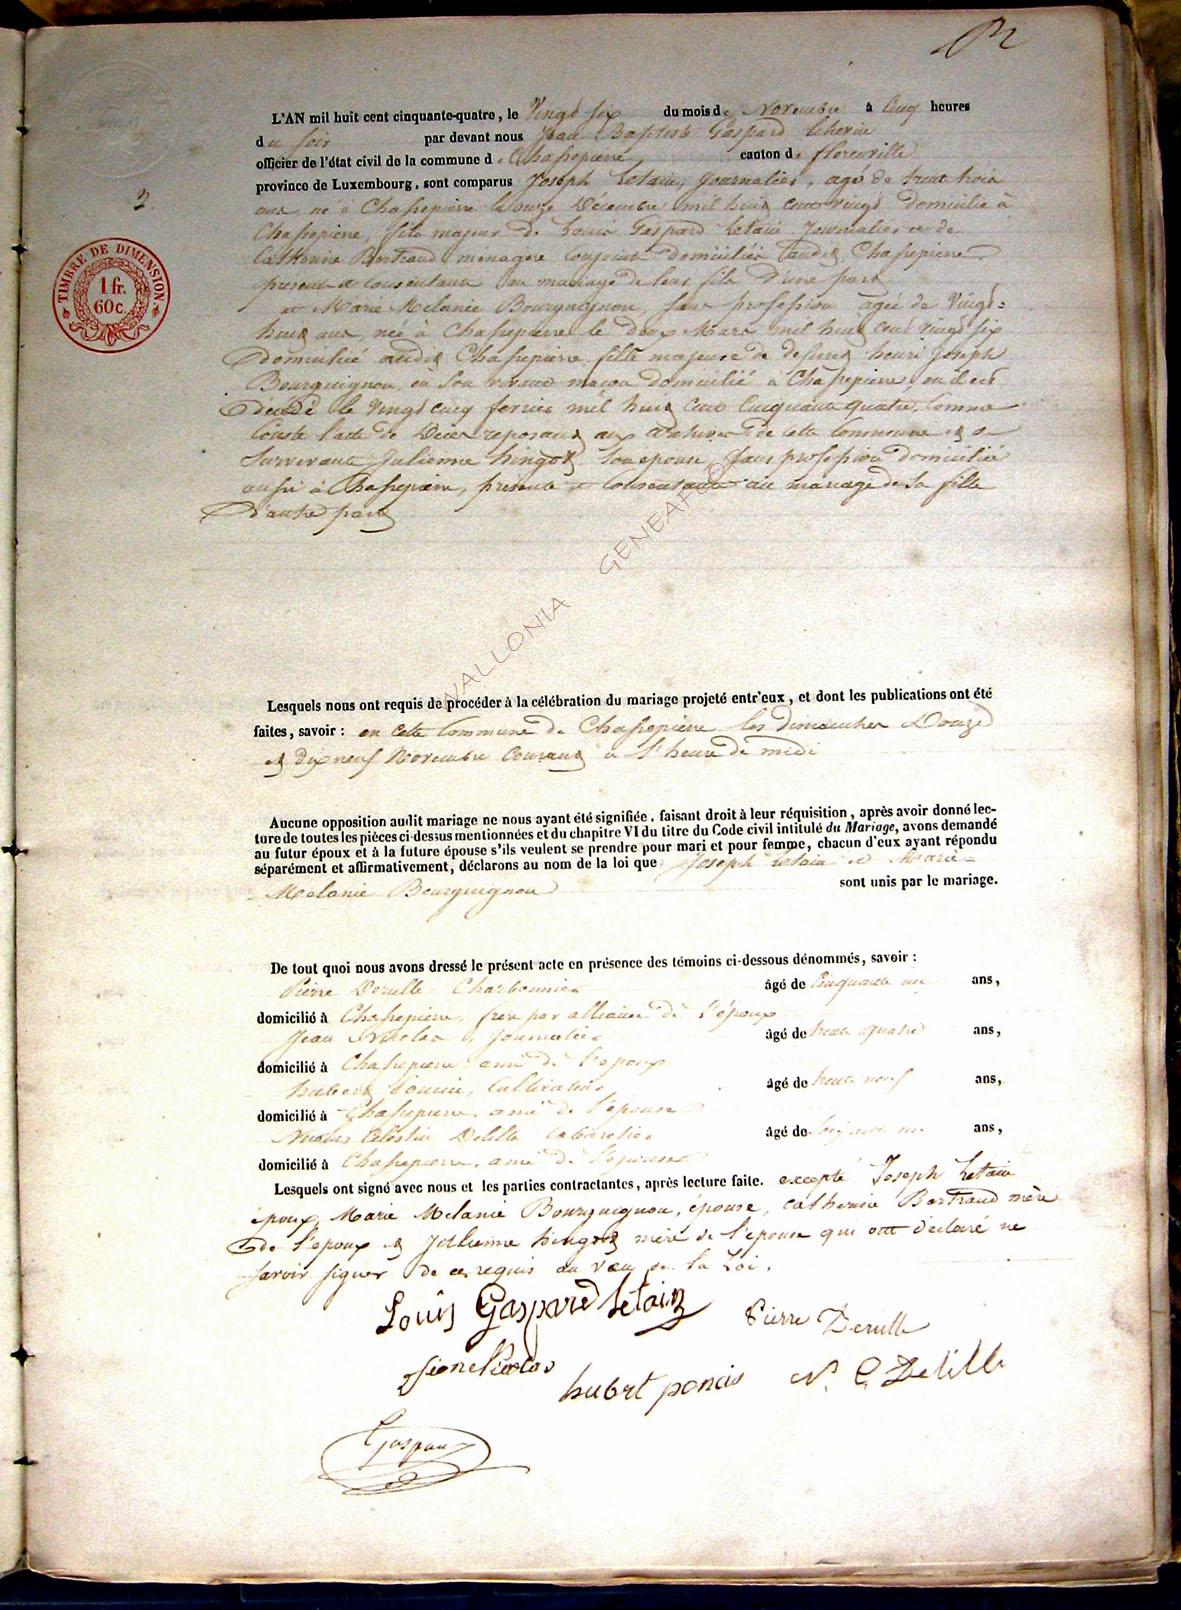 L'AN mil huit cent cinquante-quatre, le Vingt six du mois de Novembre à Cinq heures
du soir par devant nous Jean Baptiste Gaspard
officier de l'état civil de la commune de Chassepierre, canton de florenville
province de Luxembourg, sont comparus Joseph Letain, Journalier, agé de trente trois
3.
ans, né à Chassepierre le onze Decembre mil huit cent vingt domicilié à
Chassepierre, fils majeur de Louis Gaspard Letain Journalier et de
Catherine Bertrand menagere conjoint domiciliés audit Chassepierre
present et consentant au mariage de leur fils d'une part
et Marie Melanie Bourguignon, sans profession agée de vingt-
huit ans, née à Chassepierre le deux Mars mil huit cent vingt six
domicilié audit Chassepierre fille majeure de defunt henri Joseph
Bourguignon, en son vivant maçon domicilié à Chassepierre, ou il est
décédé le vingt cinq fevrier mil huit cent cinquante quatre, comme
conste l'acte de Deces reposant aux archives de cette Commune et de
survivante Julienne hingot son epouse, sans profession domicilié
aussi à Chassepierre, présente et consentante au mariage de sa fille
d'autre part
TIMBRE DE DIMENSION
1 fr.
60c.
WALLONIA GENEAFOD
Lesquels nous ont requis de procéder à la célébration du mariage projeté entr'eux, et dont les publications ont été
faites, savoir : en cette Commune de Chassepierre les dimanches Douze
et dix neuf Novembre Courant à l'heure de midi
Aucune opposition audit mariage ne nous ayant été signifiée, faisant droit à leur réquisition, après avoir donné lec-
ture de toutes les pièces ci-dessus mentionnées et du chapitre VI du titre du Code civil intitulé du Mariage, avons demandé
au futur époux et à la future épouse s'ils veulent se prendre pour mari et pour femme, chacun d'eux ayant répondu
séparément et affirmativement, déclarons au nom de la loi que Joseph Letain et Marie
Melanie Bourguignon sont unis par le mariage.
De tout quoi nous avons dressé le présent acte en présence des témoins ci-dessous dénommés, savoir :
Pierre Derulle Charbonnier âgé de Cinquante un ans,
domicilié à Chassepierre, frere par alliance de l'époux
Jean Nicolas, Journalier âgé de trente quatre ans,
domicilié à Chassepierre ami de l'epoux
hubert Cultivateur âgé de trente neuf ans,
domicilié à Chassepierre, ami de l'épouse
Nicolas Celestin Delille Cabaretier âgé de soixante un ans,
domicilié à Chassepierre, ami de l'epouse
Lesquels ont signé avec nous et les parties contractantes, après lecture faite. excepté Joseph Letain
époux, Marie Melanie Bourguignon, épouse, Catherine Bertrand mère
de l'epoux et Julienne hingot mère de l'epouse qui ont déclaré ne
savoir signer de ce requis au vœu de la Loi.
Louis Gaspard Letain Pierre Derulle
Jean Nicolas hubert poncin N. C. Delille
Gaspard